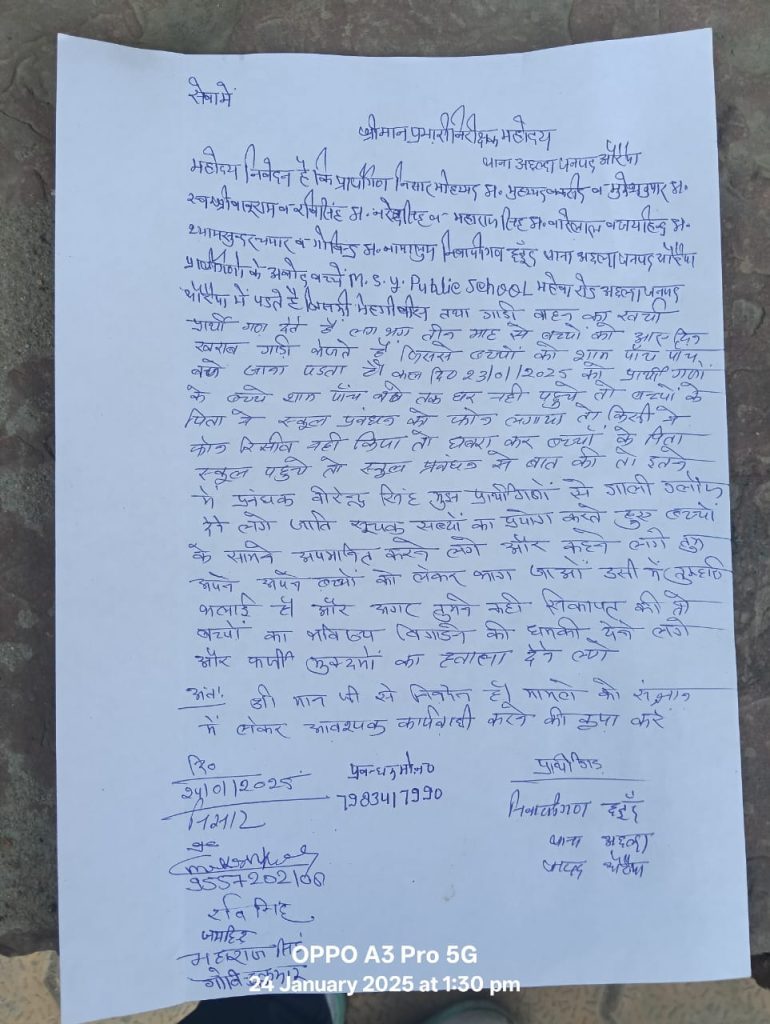 सेवामें
श्रीमान प्रभारी निरीक्षक महोदय
थाना अछल्दा जनपद औरैया
महोदय निवेदन है कि प्रार्थीगण निसार मोहम्मद S/o मुहम्मद व मुकेश कुमार S/o
स्व श्री बाबूराम व रविसिंह S/o नरेन्द्रसिंह व महाराज सिंह S/o व जयहिन्द S/o
श्यामसुन्दर व गोविन्द S/o निवासीगण थाना अछल्दा जनपद औरैया
प्रार्थीगणों के अबोद बच्चे M.S.Y. Public School महेवा रोड अछल्दा जनपद
औरैया में पडते है जिसकी मेहगी फीस तथा गाडी वाहन का खर्चा
प्रार्थी गण देते है लगभग तीन माह से बच्चों को आए दिन
खराब गाडी भेजते है जिससे बच्चों को शाम पाँच पाँच
बजे जाना पडता है। कल दि० 23/01/2025 को प्रार्थीगणों
के बच्चे शाम पाँच बजे तक घर नही पहुचे तो बच्चों के
पिता ने स्कूल प्रबंधन को फोन लगाया तो किसी ने
फोन रिसीव नही किया तो घबरा कर बच्चों के पिता
स्कूल पहुचे तो स्कूल प्रबंधन से बात की तो इतने
में प्रबंधक वीरेन्द्र सिंह मुझ प्रार्थीगणों से गाली गलौज
देने लगे जाति सूचक सब्दों का प्रयोग करते हुए बच्चों
के सामने अपमानित करने लगे और कहने लगे तुम
अपने अपने बच्चों को लेकर भाग जाओं उसी में तुम्हारी
भलाई है और अगर तुमने कही सिकायत की तो
बच्चों का भविष्य विगाडने की धमकी देने लगे
और फर्जी मुकदमों का हवाला देने लगे
अतः श्री मान जी से निवेदन है। मामले को संज्ञान
में लेकर आवश्यक कार्यवाही करने की कृपा करें
दि०
24/01/2025
प्रबन्धक मो०न०
7983417990
प्रार्थीगण
निवासीगण
थाना अछल्दा
जनपद औरैया
निसार
9557202106
रवि सिंह
जयहिन्द
महाराज सिंह
गोविन्द कुमार
OPPO A3 Pro 5G
24 January 2025 at 1:30 pm